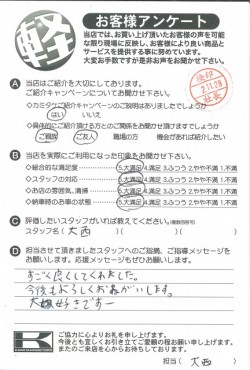 軽
お客様アンケート
当店では、お買い上げ頂いたお客様の声を可能
な限り現場に反映し、お客様により良い商品と
サービスを提供する事に努めています。
大変お手数ですが是非お声をお聞かせ下さい。
A 当店はご紹介を大切にしております。
ご紹介キャンペーンについてお聞かせ下さい。
◇カミタケご紹介キャンペーンのご説明はありましたでしょうか
はい いいえ
◇具体的にご紹介頂ける方とのご関係をお聞かせ頂けますでしょうか
ご親族 ご友人 職場の方 機会があれば紹介したい
B 当店を実際にご利用になった印象をお聞かせ下さい。
◇総合的な満足度 5.大満足 4.満足 3.ふつう 2.やや不満 1.不満
◇スタッフの対応 5.大満足 4.満足 3.ふつう 2.やや不満 1.不満
◇お店の雰囲気、清掃 5.大満足 4.満足 3.ふつう 2.やや不満 1.不満
◇納車時のお車の状態 5.大満足 4.満足 3.ふつう 2.やや不満 1.不満
C 評価したいスタッフがいれば教えてください。(複数回答可)
スタッフ名( 大西 )( )( )
D 担当させて頂きましたスタッフへのご指摘、ご指導メッセージを
お願いします。応援メッセージもぜひお願いします。
すごく良くしてくれました。
今後もよろしくおねがいします。
大西好きですー
K
ご協力に心よりお礼を申し上げます。
今後とも宜しくお引き立てご愛顧の程お願い申し上げます。
またのご来店を心からお待ちしております。
担当( 大西 )